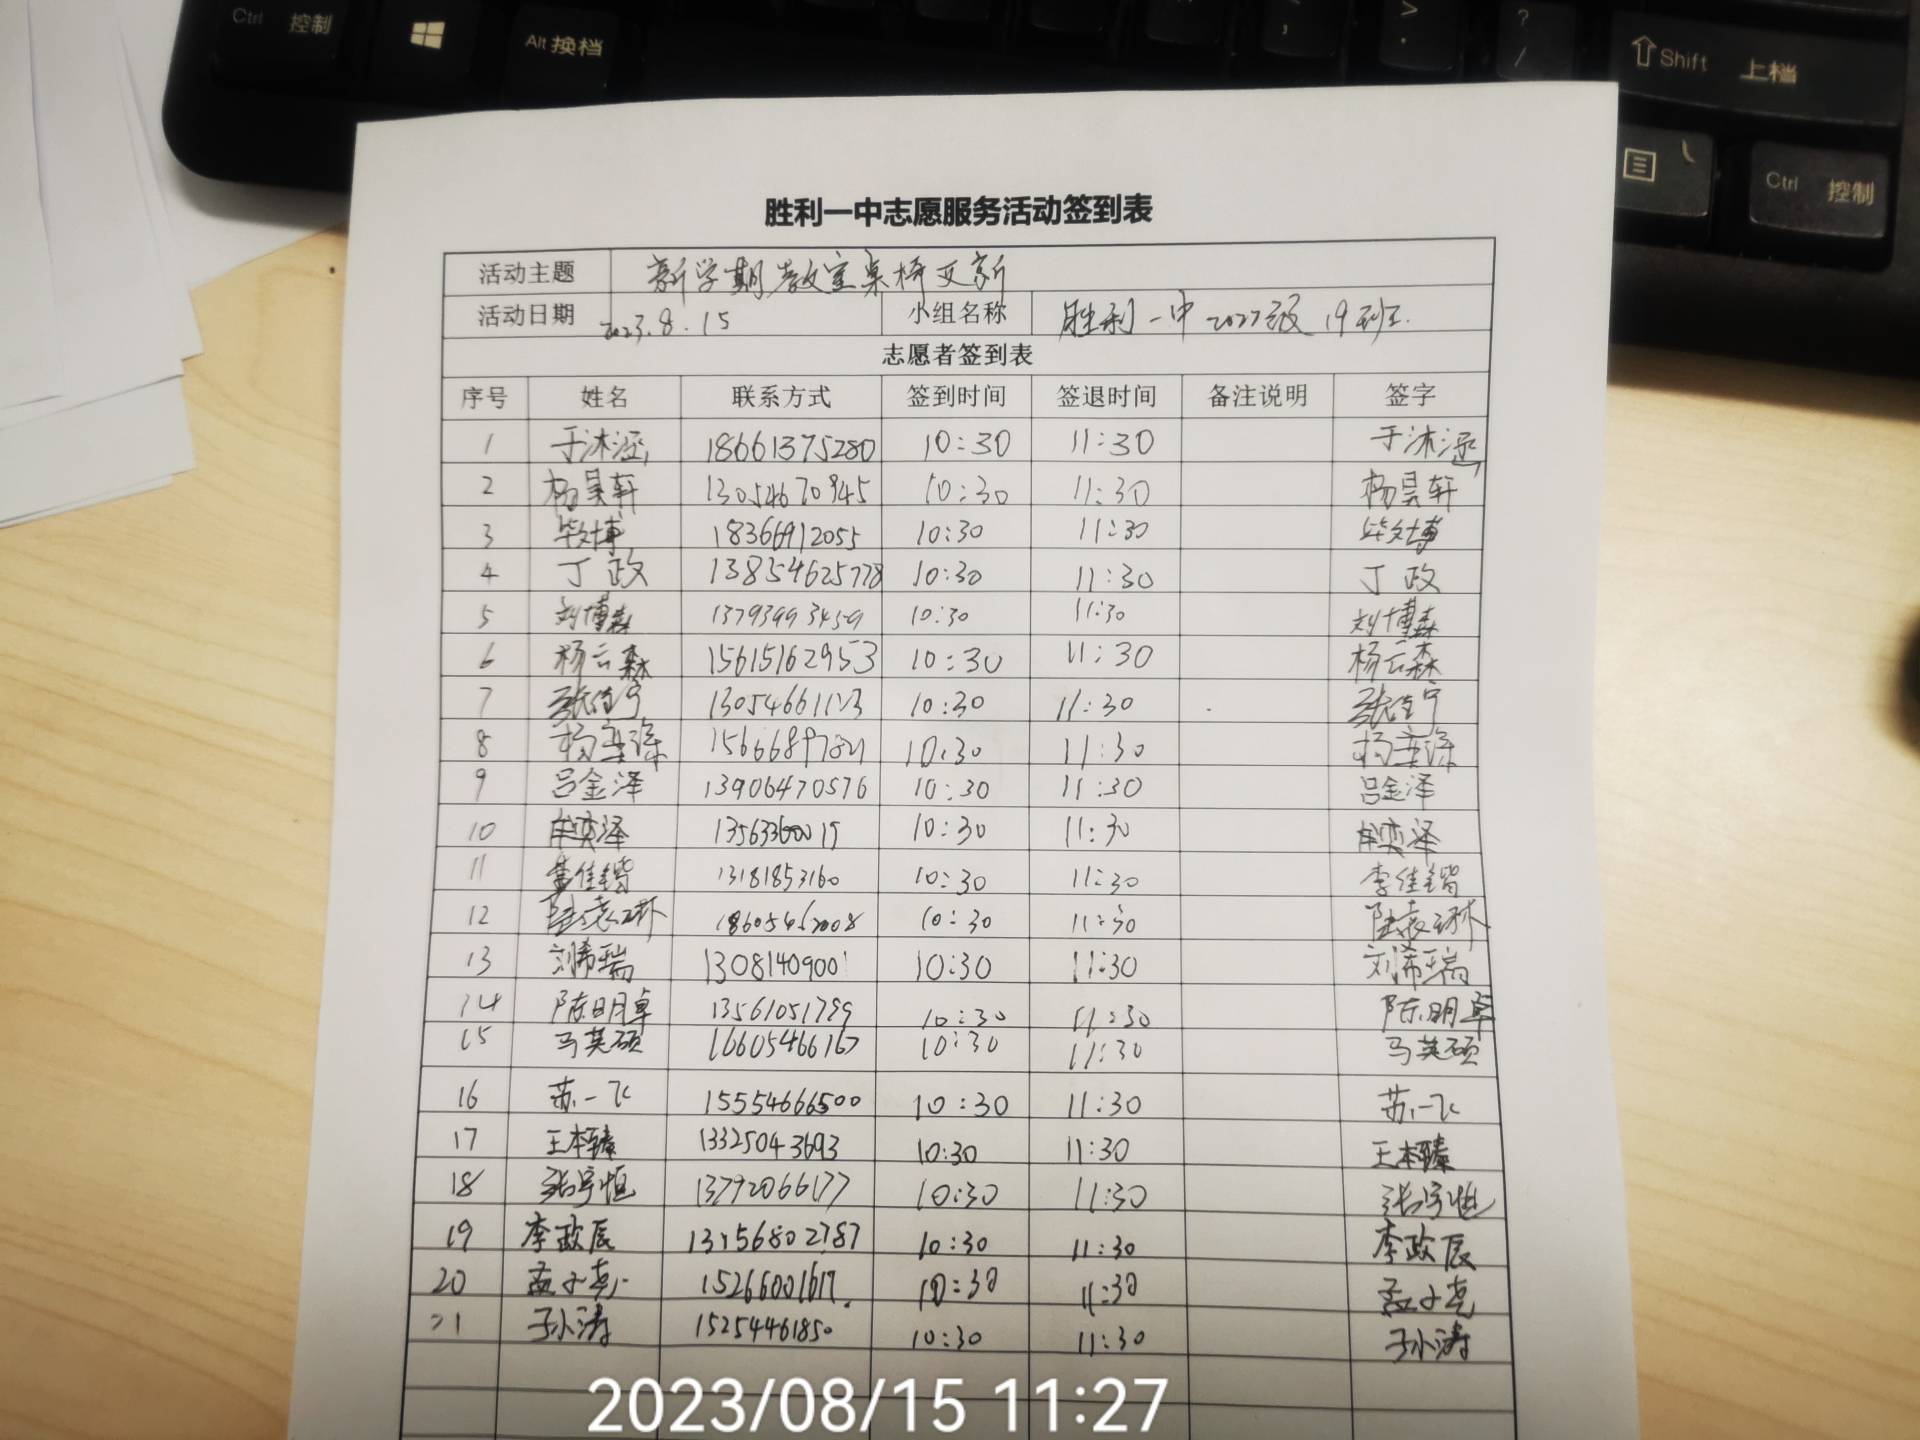 Ctrl 控制
Alt 换档
> .
? /
Shift 上档
Ctrl 控制
胜利一中志愿服务活动签到表
活动主题 新学期教室桌椅更新
活动日期 2023.8.15 小组名称 胜利一中2022级19班.
志愿者签到表
序号 姓名 联系方式 签到时间 签退时间 备注说明 签字
1 于沐涵 18661375280 10:30 11:30 于沐涵
2 杨昊轩 13054670945 10:30 11:30 杨昊轩
3 毕文博 18366912055 10:30 11:30 毕文博
4 丁政 13854625778 10:30 11:30 丁政
5 刘博森 13793993459 10:30 11:30 刘博森
6 杨云森 15615162953 10:30 11:30 杨云森
7 张佳宁 10:30 11:30 张佳宁
8 10:30 11:30
9 吕金泽 13906470576 10:30 11:30 吕金泽
10 奕泽 10:30 11:30 奕泽
11 李佳锴 13181853160 10:30 11:30 李佳锴
12 陆袁琳 18605462008 10:30 11:30 陆袁琳
13 刘希瑞 1308140900 10:30 11:30 刘希瑞
14 陈明卓 13561051799 10:30 11:30 陈明卓
15 马英硕 16605466167 10:30 11:30 马英硕
16 苏一飞 15554666500 10:30 11:30 苏一飞
17 王本臻 13325043693 10:30 11:30 王本臻
18 张宇恒 13792066177 10:30 11:30 张宇恒
19 李政辰 10:30 11:30 李政辰
20 孟子尧 15266001617. 10:30 11:30 孟子尧
21 孙涛 15254461850 10:30 11:30 孙涛
2023/08/15 11:27